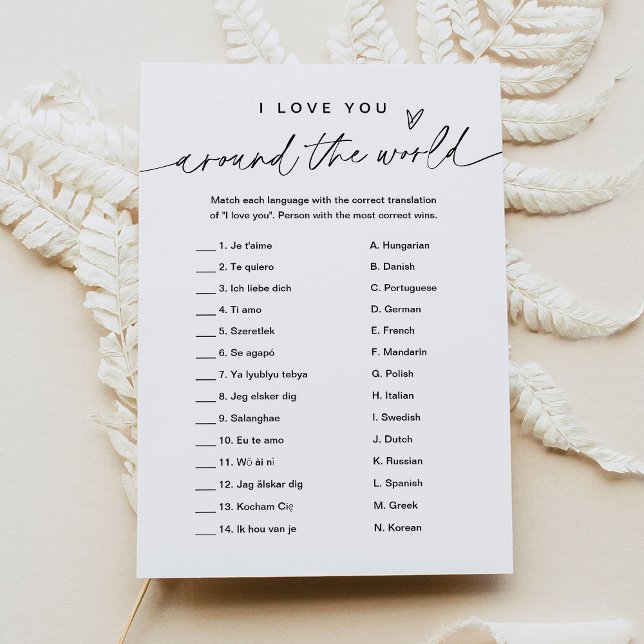 I LOVE YOU
around the world
Match each language with the correct translation
of "I love you". Person with the most correct wins.
___ 1. Je t'aime A. Hungarian
___ 2. Te quiero B. Danish
___ 3. Ich liebe dich C. Portuguese
___ 4. Ti amo D. German
___ 5. Szeretlek E. French
___ 6. Se agapó F. Mandarin
___ 7. Ya lyublyu tebya G. Polish
___ 8. Jeg elsker dig H. Italian
___ 9. Salanghae I. Swedish
___ 10. Eu te amo J. Dutch
___ 11. Wǒ ài nǐ K. Russian
___ 12. Jag älskar dig L. Spanish
___ 13. Kocham Cię M. Greek
___ 14. Ik hou van je N. Korean